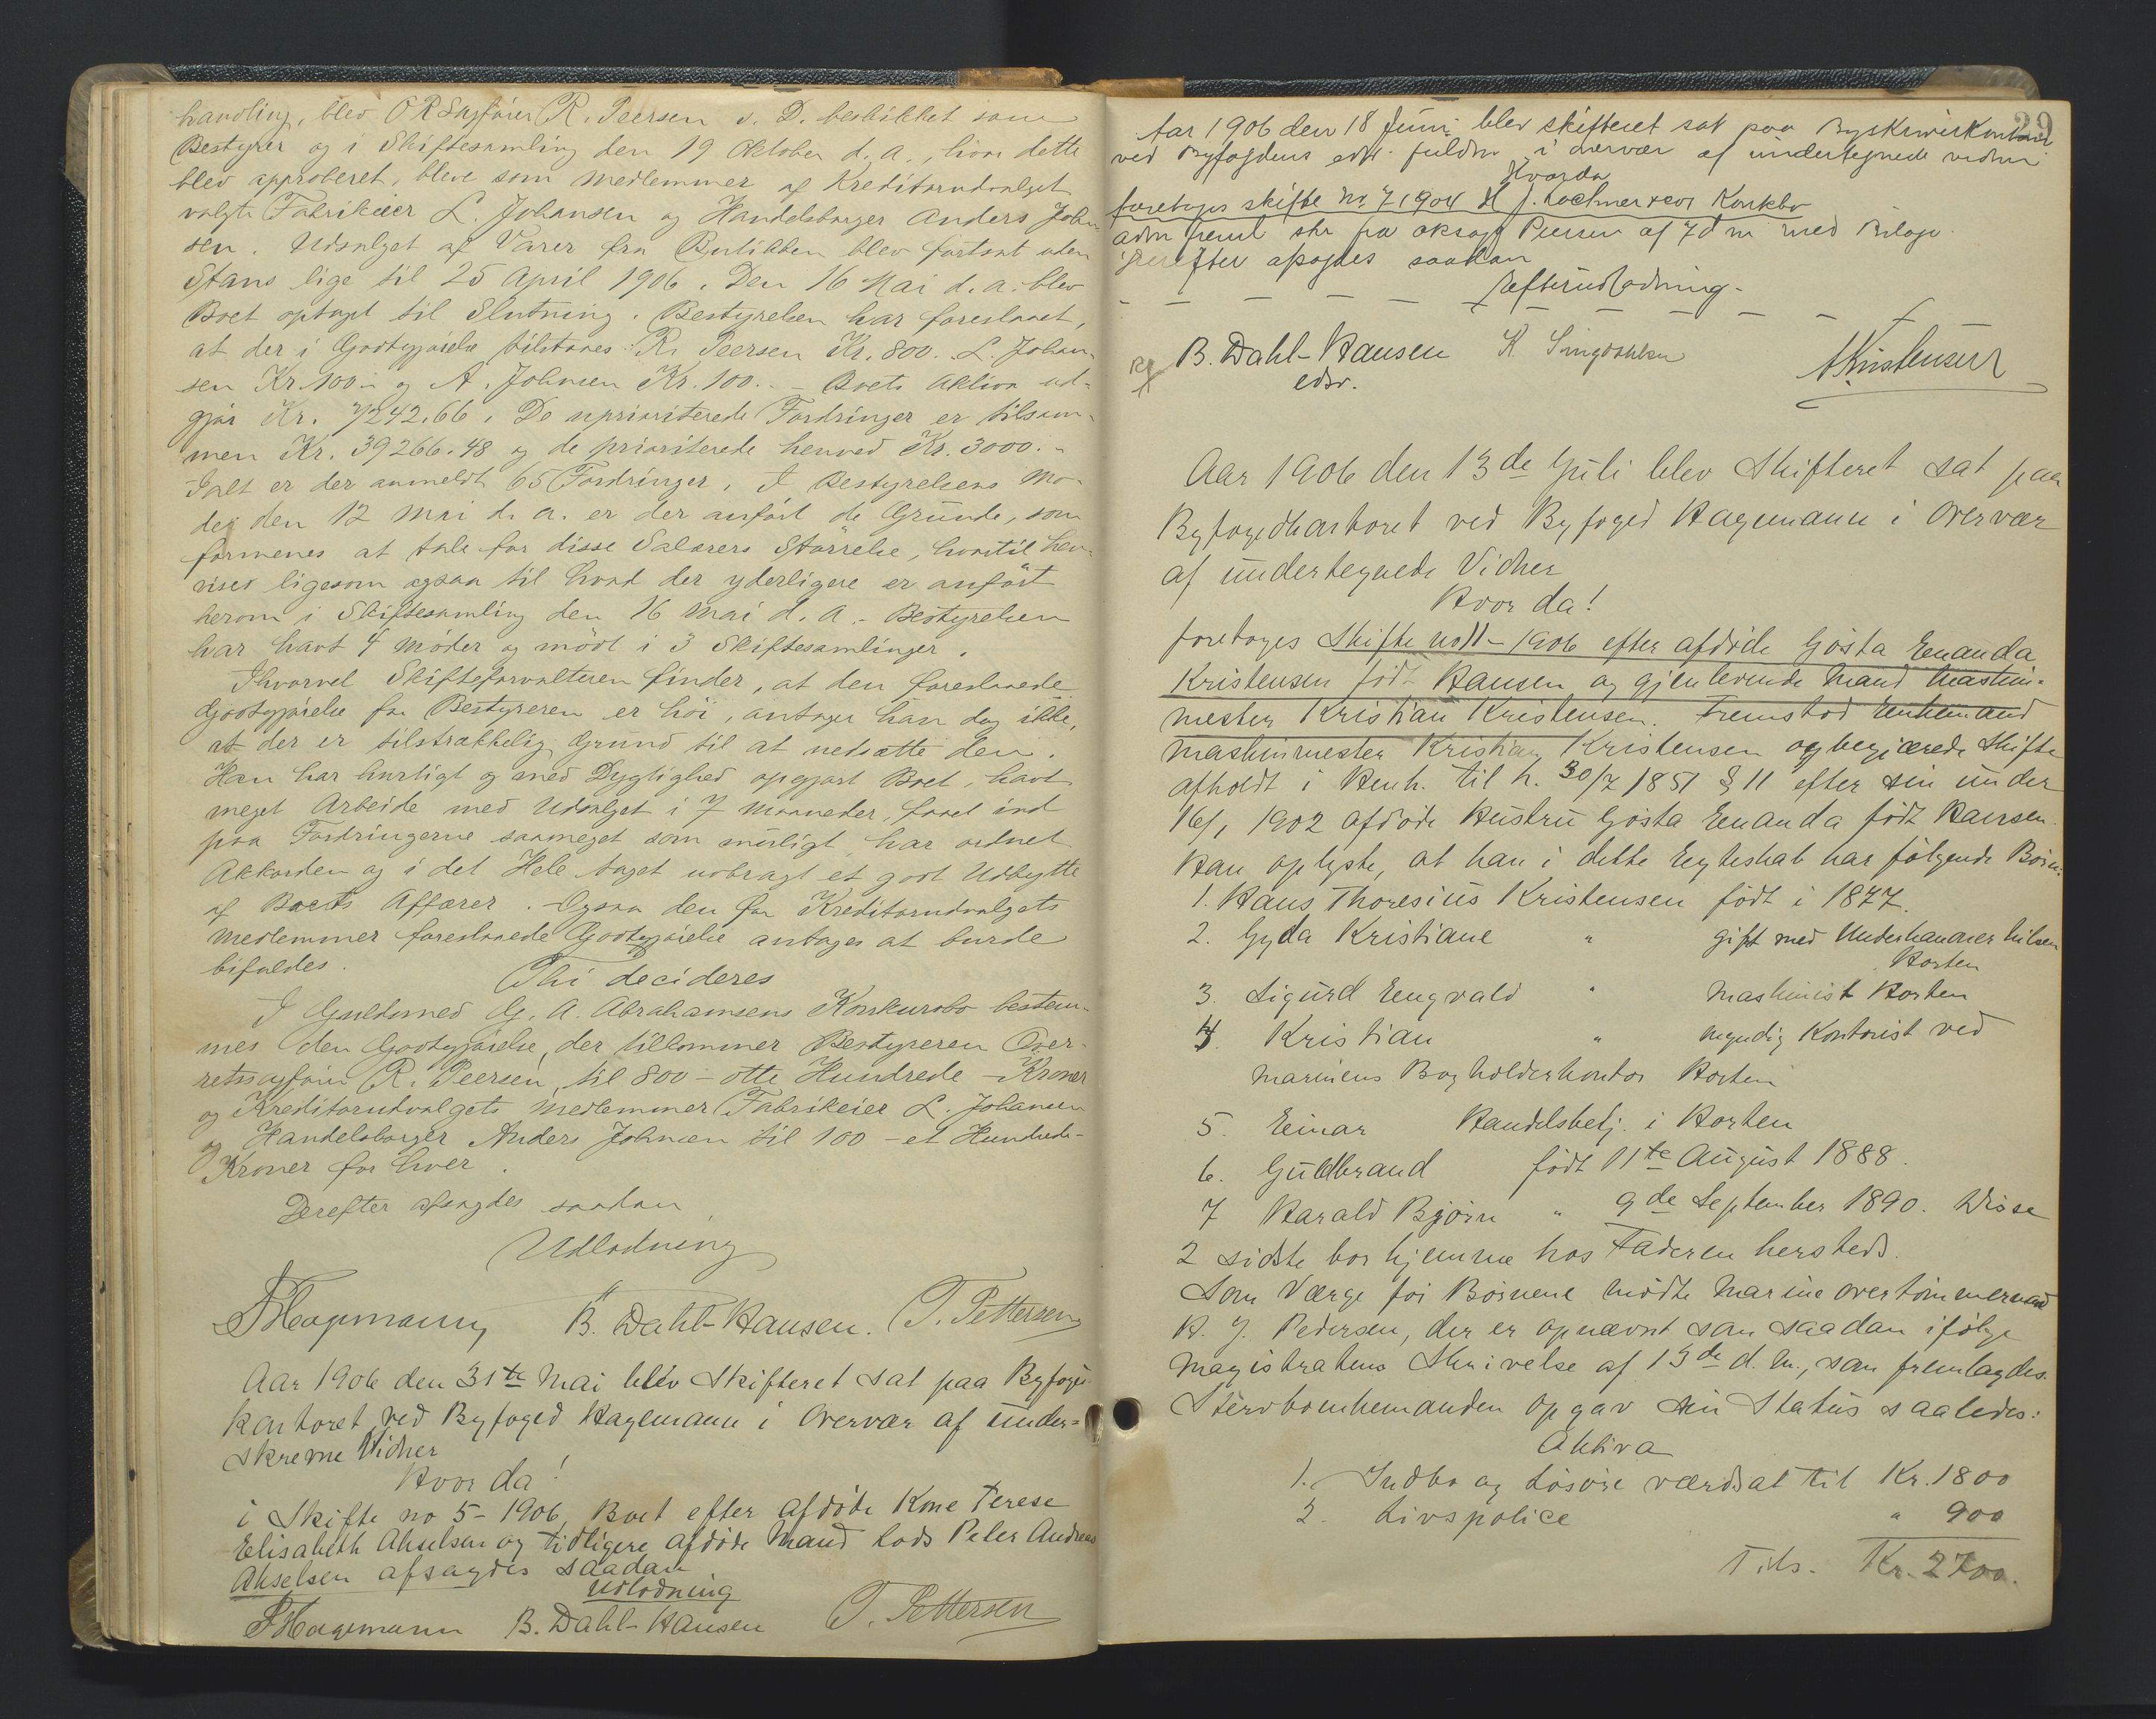 handling, blev O R Sagfører R. Peersen s. D. beskikket som
Bestyrer og i Skiftesamling den 19 Oktober d. a., hvor dette
blev approberet, bleve som Medlemmer af Kreditorudvalget
valgte Fabrikeier L. Johansen og Handelsborger Anders John-
sen. Udsalget af Varer fra Butikken blev fortsat uden
Stans lige til 25 April 1906. Den 16 Mai d. a. blev
Boet optaget til Slutning. Bestyrelsen har foreslaaet,
at der i Godtgjørelse tilstaaes R. Peersen Kr. 800. L. Johan-
sen Kr. 100.- og A. Johnsen Kr. 100.- - Boets Aktiva ud-
gjør Kr. 7242.66. De uprioriterede Fordringer er tilsam-
men Kr. 39266.48 og de prioriterede henved Kr. 3000.-
Ialt er der anmeldt 65 Fordringer. I Bestyrelsens Mø-
der den 12 Mai d. a. er der anført de Grunde, som
formenes at tale for disse Salærers Størrelse, hvortil hen-
vises ligesom ogsaa til hvad der yderligere er anført
herom i Skiftesamling den 16 Mai d. A.- Bestyrelsen
har havt 4 Møder og mødt i 3 Skiftesamlinger.
Ihvorvel Skifteforvalteren finder, at den foreslaaede
Godtgjørelse for Bestyreren er høi, antager han dog ikke,
at der er tilstrækkelig Grund til at nedsætte den.
Han har hurtigt og med Dygtighed opgjort Boet, havt
meget Arbeide med Udsalget i 7 Maaneder, faaet ind
paa Fordringerne saameget som muligt, har ordnet
Akkorden og i det Hele taget udbragt et godt Udbytte
af Boets Affærer. Ogsaa den for Kreditorudvalgets
Medlemmer foreslaaede Godtgjørelse antages at burde
bifaldes.
Thi decideres
I Guldsmed G. A. Abrahamsens Konkursbo bestem-
mes den Godtgjørelse, der tilkommer Bestyreren Over-
retssagfører R. Peersen, til 800 - otte Hundrede - Kroner
og Kreditorudvalgets Medlemmer Fabrikeier L. Johansen
og Handelsborger Anders Johnsen til 100 - et Hundrede -
Kroner for hver.
Derefter afsagdes saadan
Udlodning
Hagemann B. Dahl-Hansen. T. Pettersen
Aar 1906 den 31te Mai blev Skifteret sat paa Byfoged-
kontoret ved Byfoged Hagemann i Overvær af under-
skrevne Vidner
Hvor da!
i Skifte no 5-1906, Boet efter afdøde Kone Terese
Elisabeth Akselsen og tidligere afdøde Mand Lods Peter Andreas
Akselsen afsagdes saadan
Udlodning
Hagemann B. Dahl-Hansen T. Pettersen
29
Aar 1906 den 18 Juni blev skifteret sat paa Byskriverkontoret
ved Byfogdens edsv. fuldm. i overvær af undertegnede vidner
Hvorda
foretoges skifte no. 7 1904 H J. Konkbo
af 7 d m med Bilage.
Herefter afsagdes saadan
efterudlodning.
B. Dahl-Hansen
edsv.
Kristensen
Aar 1906 den 13de Juli blev Skifteret sat paa
Byfogedkontoret ved Byfoged Hagemann i Overvær
af undertegnede Vidner
Hvor da!
foretoges Skifte no 11-1906 efter afdøde Gjøsta Enanda
Kristensen født Hansen og gjenlevende Mand Maskin-
mester Kristian Kristensen. Fremstod Enkemand
Maskinmester Kristian Kristensen og begjærede Skifte
afholdt i Henh. til L. 30/7 1851 § 11 efter sin under
16/1 1902 afdøde Hustru Gjøsta Enanda født Hansen.
Han oplyste, at han i dette Ægteskab har følgende Børn:
1. Hans Thoresius Kristensen født i 1877.
2. Gyda Kristiane " gift med Underkanoner Nilsen
Horten
3. Sigurd Engvald " Maskinist Horten
4. Kristian " myndig Kontorist ved
Marinens Bogholderkontor Horten
5. Einar Handelsbetj. i Horten
6. Guldbrand født 11te August 1888.
7 Harald Bjørn " 9de September 1890. Disse
2 sidste bor hjemme hos Faderen hersteds.
Som Værge for Børnene mødte Marineovertømmermand
H. J. Pedersen, der er opnævnt som saadan ifølge
Magistratens Skrivelse af 13de d. M., som fremlagdes.
Stervboenkemanden opgav sin Status saaledes:
Aktiva
1. Indbo og Løsøre værdsat til Kr. 1800
2. Livspolice " 900
Tils. Kr. 2700.